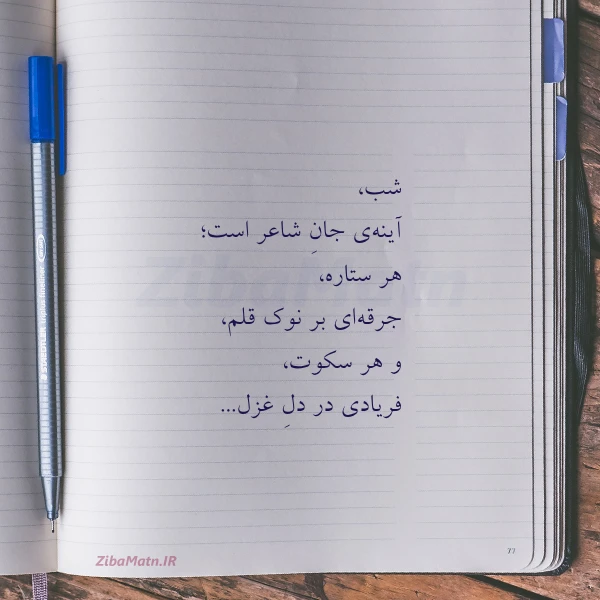 شب،
آینه‌ی جانِ شاعر است؛
هر ستاره،
جرقه‌ای بر نوک قلم،
و هر سکوت،
فریادی در دلِ غزل...
ZibaMatn
STAEDTLER triplus fineliner
ZibaMatn.IR
77